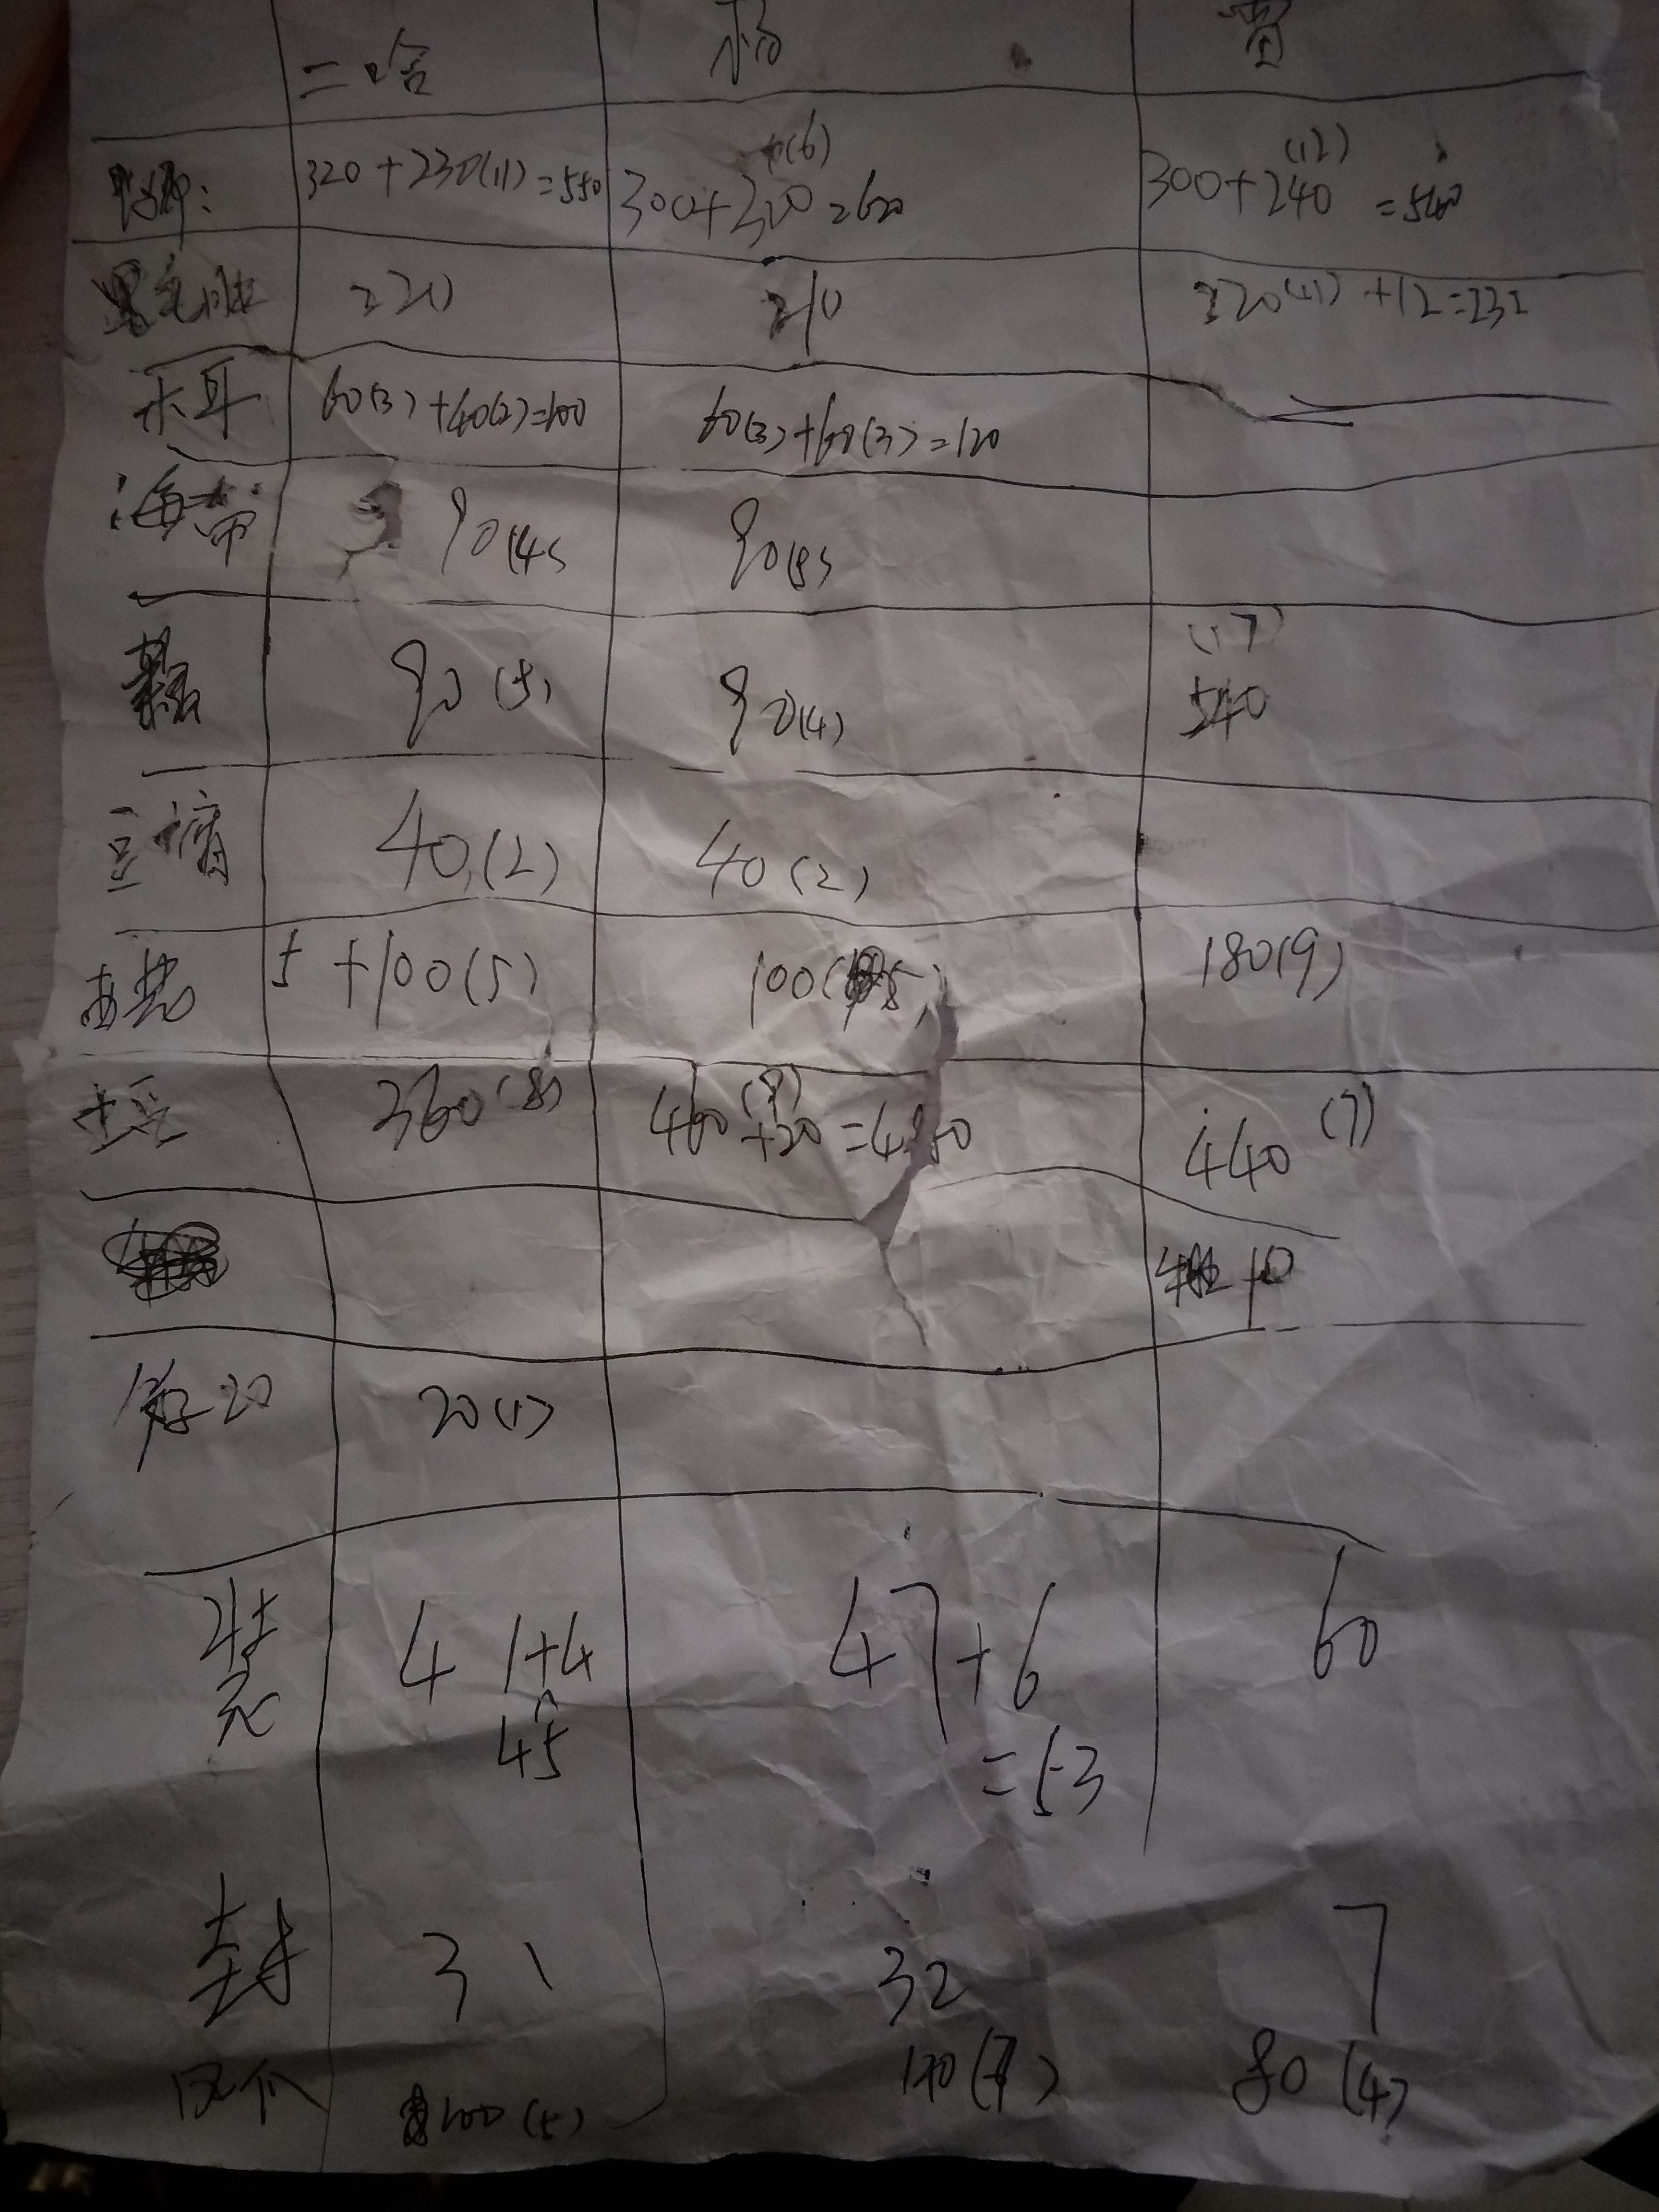 二哈 杨 曹
320+230(11)=550 300+320(16)=620 300+240(12)=540
黑毛肚 220 210 220(11)+12=232
木耳 60(3)+40(2)=100 60(3)+60(3)=120
海带 90(4) 90(5)
90(5) 90(4) 540(17)
豆腐 40(2) 40(2)
5+100(5) 100(5) 180(9)
土豆 360(8) 460(9)+20=480 440(7)
10
20 20(1)
装 41+4 47+6 60
45 =53
封 31 32 7
凤爪 100(5) 140(7) 80(4)